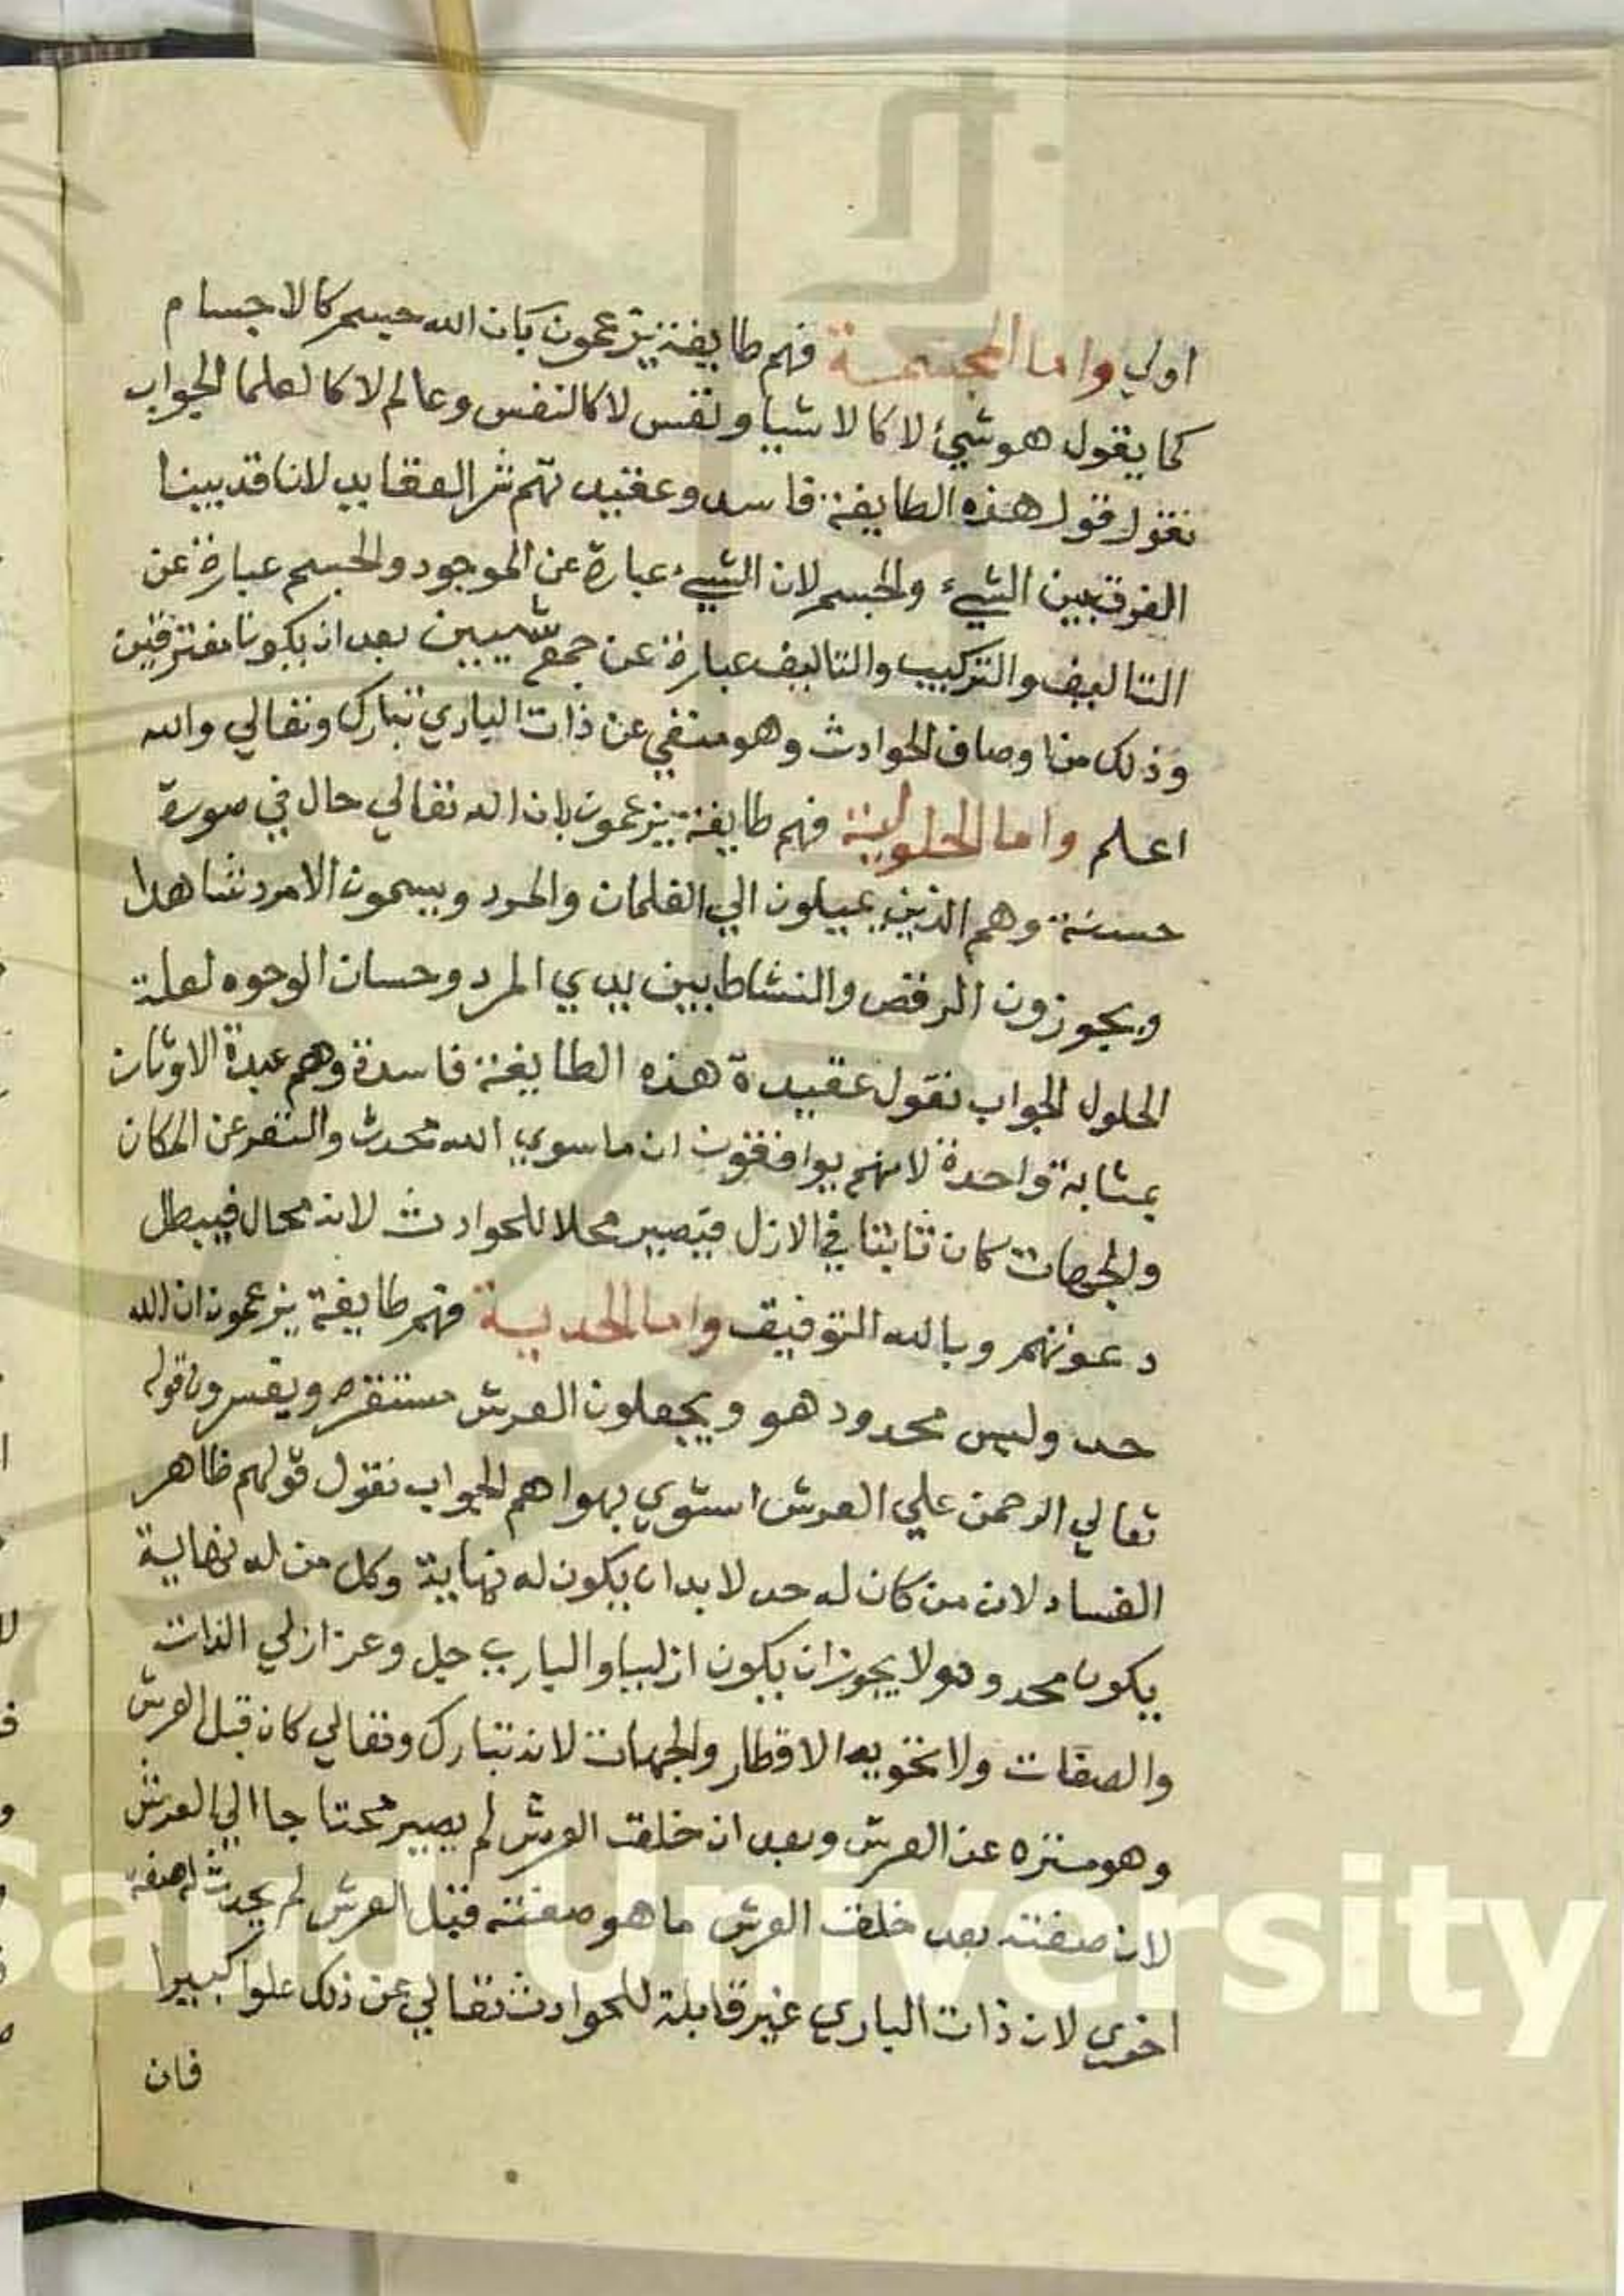 اولي واما المجسمة فهم طايفة يزعمون بان الله جسم كالاجسام
كما يقول هو شيئ لا كالاشيا ونفس لا كالنفس وعالم لا كالعلما الجواب
نقول قول هذه الطايفة فاسد وعقيدتهم شر العقايد لانا قد بينا
الفرق بين الشيء والجسم لان الشيء عبارة عن الموجود والجسم عبارة عن
التاليف والتركيب والتاليف عبارة عن جمع شييين بعد ان يكونا مفترقين
وذلك من اوصاف الحوادث وهو منفي عن ذات الباري تبارك وتعالي والله
اعلم واما الحلولية فهم طايفة يزعمون بان الله تعالي حال في صورة
حسنة وهم الذين يميلون الي الغلمان والمرد ويسمون الامرد شاهدا
ويجوزون الرقص والنشاط بين يدي المرد وحسان الوجوه لعلة
الحلول الجواب نقول عقيدة هذه الطايفة فاسدة وهم عبدة الاوثان
بمثابة واحدة لانهم يوافقون ان ما سوي الله محدث عن المكان
والجهات كان ثابتا في الازل فيصير محلا للحوادث لانه محال فيبطل
دعوتهم وبالله التوفيق واما الحدية فهم طايفة يزعمون ان الله
حد وليس محدود هو ويجعلون العرش مستقره ويفسرون قوله
تعالي الرحمن علي العرش استوي بهواهم الجواب نقول قولهم ظاهر
الفساد لان من كان له حد لا بد ان يكون له نهاية وكل من له نهاية
يكون محدود ولا يجوز ان يكون ازليا والباري جل وعز ازلي الذات
والصفات ولا تحويه الاقطار والجهات لانه تبارك وتعالي كان قبل العرش
وهو منزه عن العرش وبعد ان خلق العرش لم يصير محتاجا الي العرش
لان صفته بعد خلق العرش ما هو صفته قبل العرش لم يحدث له صفة
اخري لان ذات الباري غير قابلة للحوادث تعالي عن ذلك علوا كبيرا
فان
Saud University